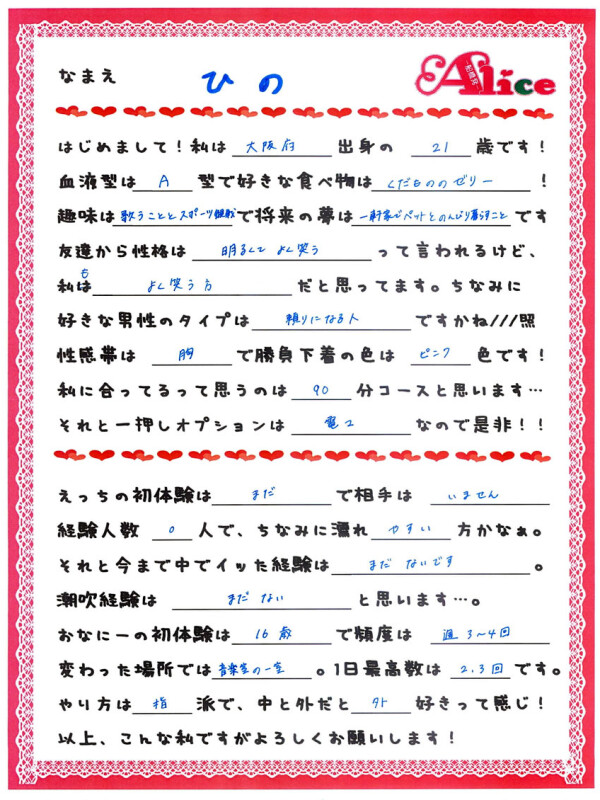 なまえ ひの
一期一会 Alice
はじめまして！私は 大阪府 出身の 21 歳です！
血液型は A 型で好きな食べ物は くだもののゼリー ！
趣味は 歌うこととスポーツ観戦 で将来の夢は 一軒家でペットとのんびり暮らすこと です
友達から性格は 明るくて よく笑う って言われるけど、
も
私は よく笑う方 だと思ってます。ちなみに
好きな男性のタイプは 頼りになる人 ですかね///照
性感帯は 胸 で勝負下着の色は ピンク 色です！
私に合ってるって思うのは 90 分コースと思います…
それと一押しオプションは 電マ なので是非！！
えっちの初体験は まだ で相手は いません
経験人数 0 人で、ちなみに濡れ やすい 方かなぁ。
それと今まで中でイッた経験は まだ ないです 。
潮吹経験は まだ ない と思います…。
変わった場所では 音楽室の一室 。1日最高数は 2,3回 です。
やり方は 指 派で、中と外だと 外 好きって感じ！
以上、こんな私ですがよろしくお願いします！